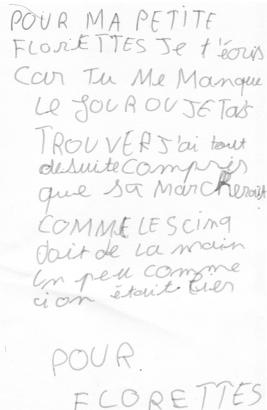 POUR MA PETITE
FLORETTES Je t'écris
Car Tu Me Manque
Le JOUR OU JE TAS
TROUVER J'ai tout
desuite compris
que sa MARCHerait
COMME LES CINQ
doit de La main
un peu comme
ci on était Lier
POUR
FLORETTES